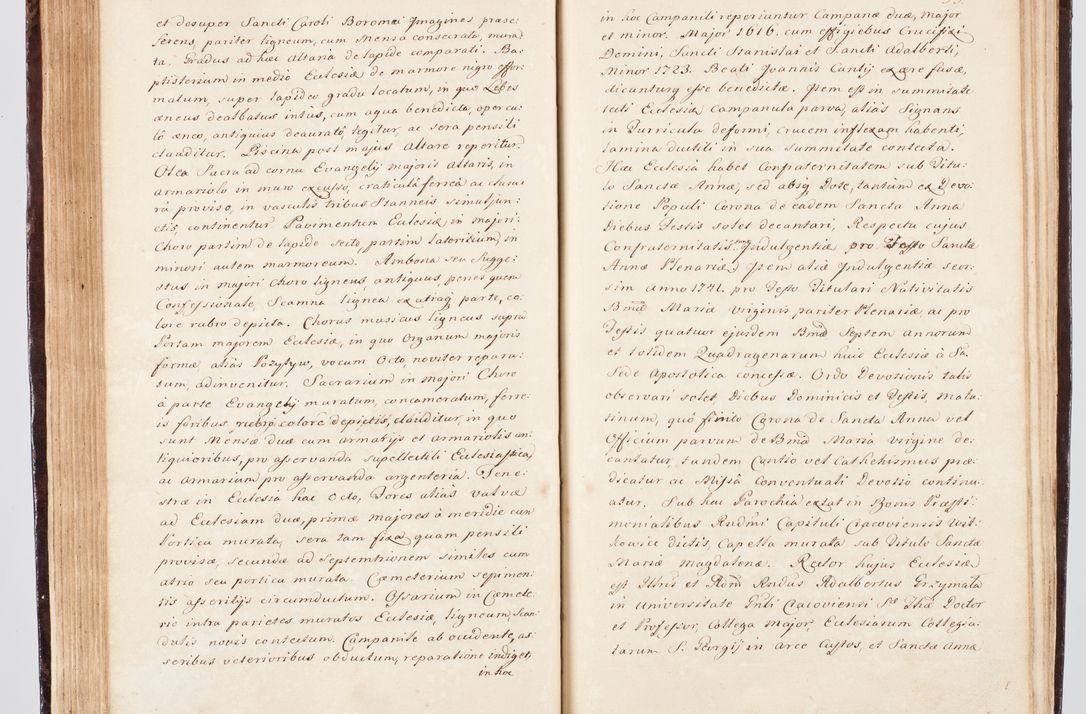 et desuper Sancti Caroli Boromæi Imagines præse-
ferens, pariter ligneum, cum Mensa consecrata, mura-
ta, Gradus ad hæc Altaria de lapide comparati. Ba-
ptisterium in medio Ecclesiæ de marmore nigro effor-
matum, super lapideo gradu locatum, in quo Lebes
æneus dealbatus intus, cum aqua benedicta, opercu-
lô æneo, antiquius deauratô tegitur, ac sera pensili
clauditur. Piscina post majus Altare reperitur.
Olea Sacra ad cornu Evangelij majoris Altaris, in
armariolo in muro excusso, craticulâ ferreâ ac clausu-
râ proviso, in vasculis tribus Stanneis simul jun-
ctis, continentur Pavimentum Ecclesiæ in majori
Choro partim de lapide secto, partim lateritium, in
minori autem marmoreum. Ambona seu Sugge-
stus in majori Choro ligneus, antiquus, penes quem
Confessionale, Scamna lignea ex utraq parte, co-
lore rubro depicta. Chorus musicus ligneus supra
Portam majorem Ecclesiæ, in quo Organum majoris
formæ aliàs Pozytyw, vocum Octo noviter repara-
tum, adinvenitur. Sacrarium in majori Choro
à parte Evangelij muratum, concameratum, ferre-
is foribus, rubro colore depictis, clauditur, in quo
sunt Mensæ duæ cum armarijs et armariolis an-
tiquioribus, pro asservanda supellectili Ecclesiastica,
ac Armarium pro asservanda argenteria. Fene-
stræ in Ecclesia hac Octo, Fores aliàs valvæ
ad Ecclesiam duæ, primæ majores à meridie cum
Portica murata, sera tam fixa quam pensili
provisæ, secundæ ad Septemtrionem similes cum
atrio seu portica murata. Cæmeterium sepimen-
tis asseritijs circumductum. Ossarium in Cæmete-
rio intra parietes muratos Ecclesiæ, ligneum, Scan-
dulis novis contectum. Campanile ab occidente, as-
seribus veterioribus obductum, reparatione indiget,
in hoc
in hoc Campanili reperiuntur Campanæ duæ, major
et minor. Major 1616. cum effigiebus Crucifixi
Domini, Sancti Stanislai et Sancti Adalberti,
Minor 1723. Beati Joannis Cantij ex ære fusæ,
dicuntur esse benedictæ. Item est in summitate
tecti Ecclesiæ Campanula parva, aliàs Signans
in Turricula deformi, crucem inflexam habenti,
lamina ductili in sua summitate contecta.
Hæc Ecclesia habet Confraternitatem sub Titu-
lo Sanctæ Annæ, sed absq Dote, tantum ex Devo-
tione Populi Corona de eadem Sancta Anna
Diebus Festis solet decantari, Respectu cujus
Confraternitatis sunt Indulgentiæ pro Festo Sanctæ
Annæ Plenariæ. Item aliæ Indulgentiæ seor-
sim anno 1741. pro Festo Titulari Nativitatis
Bmæ Mariæ Virginis pariter Plenariæ ac pro
Festis quatuor ejusdem Bmæ Septem annorum
et totidem Quadragenarum huic Ecclesiæ à Sa.
Sede Apostolica concessæ. Ordo Devotionis talis
observari solet Diebus Dominicis et Festis, matu-
tinum, quô finito Corona de Sancta Anna vel
Officium parvum de Bmâ Maria Virgine de-
cantatur, tandem Cantio vel Cathehismus præ-
dicatur ac Missâ Conventuali Devotio continu-
atur. Sub hac Parochia extat in Bonis Præsti-
monialibus Rndmi Capituli Cracoviensis Wit-
kowice dictis, Capella murata sub Titulo Sanctæ
Mariæ Magdalenæ. Rector hujus Ecclesiæ
est Illris et Adm Rndus Adalbertus Grzymała
in Universitate Gnli Cracoviensi Sæ Thæ Doctor
et Professor, Collega Major, Ecclesiarum Collegia-
tarum S. Georgij in Arce Custos, et Sanctæ Annæ